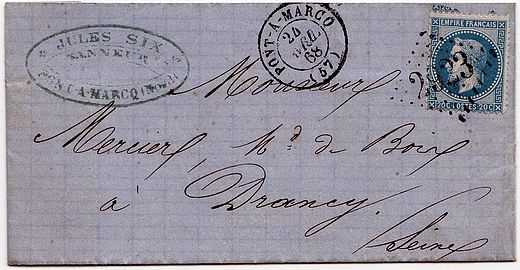 JULES SIX
TANNEUR
PONT-A-MARCQ (Nord)
PONT-A-MARCQ
24
68
(57)
EMPIRE FRANÇAIS
20C POSTES 20C
Monsieur
Mercier, Md de Bois
à Drancy
Seine